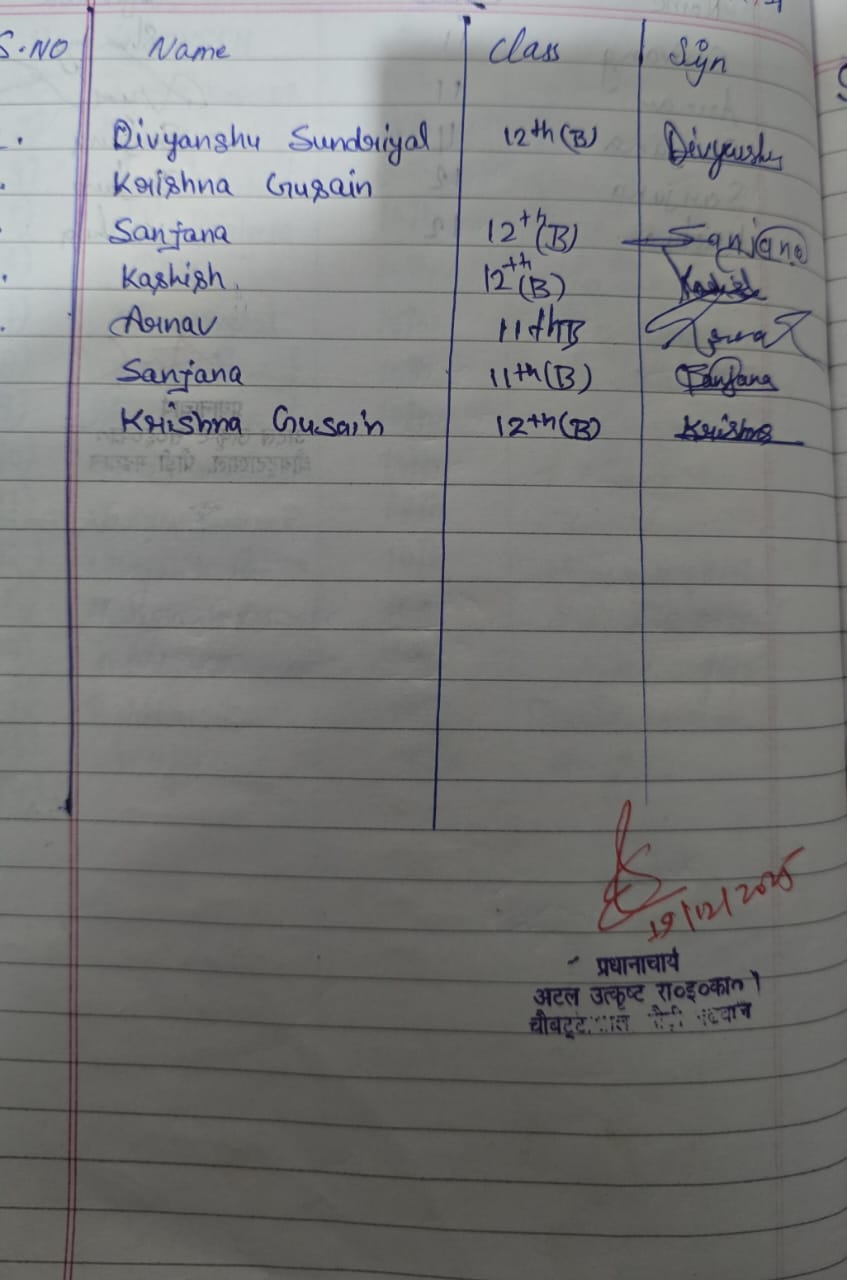 S.NO Name Class Sign
Divyanshu Sundriyal 12th (B) Divyanshu
Krishna Gusain
Sanjana 12th (B) Sanjana
Kashish 12th (B) Kashish
Arnav 11th B Arnav
Sanjana 11th (B) Sanjana
Krishna Gusain 12th (B) Krishna
19/12/2025
प्रधानाचार्य
अटल उत्कृष्ट रा०इ०का०